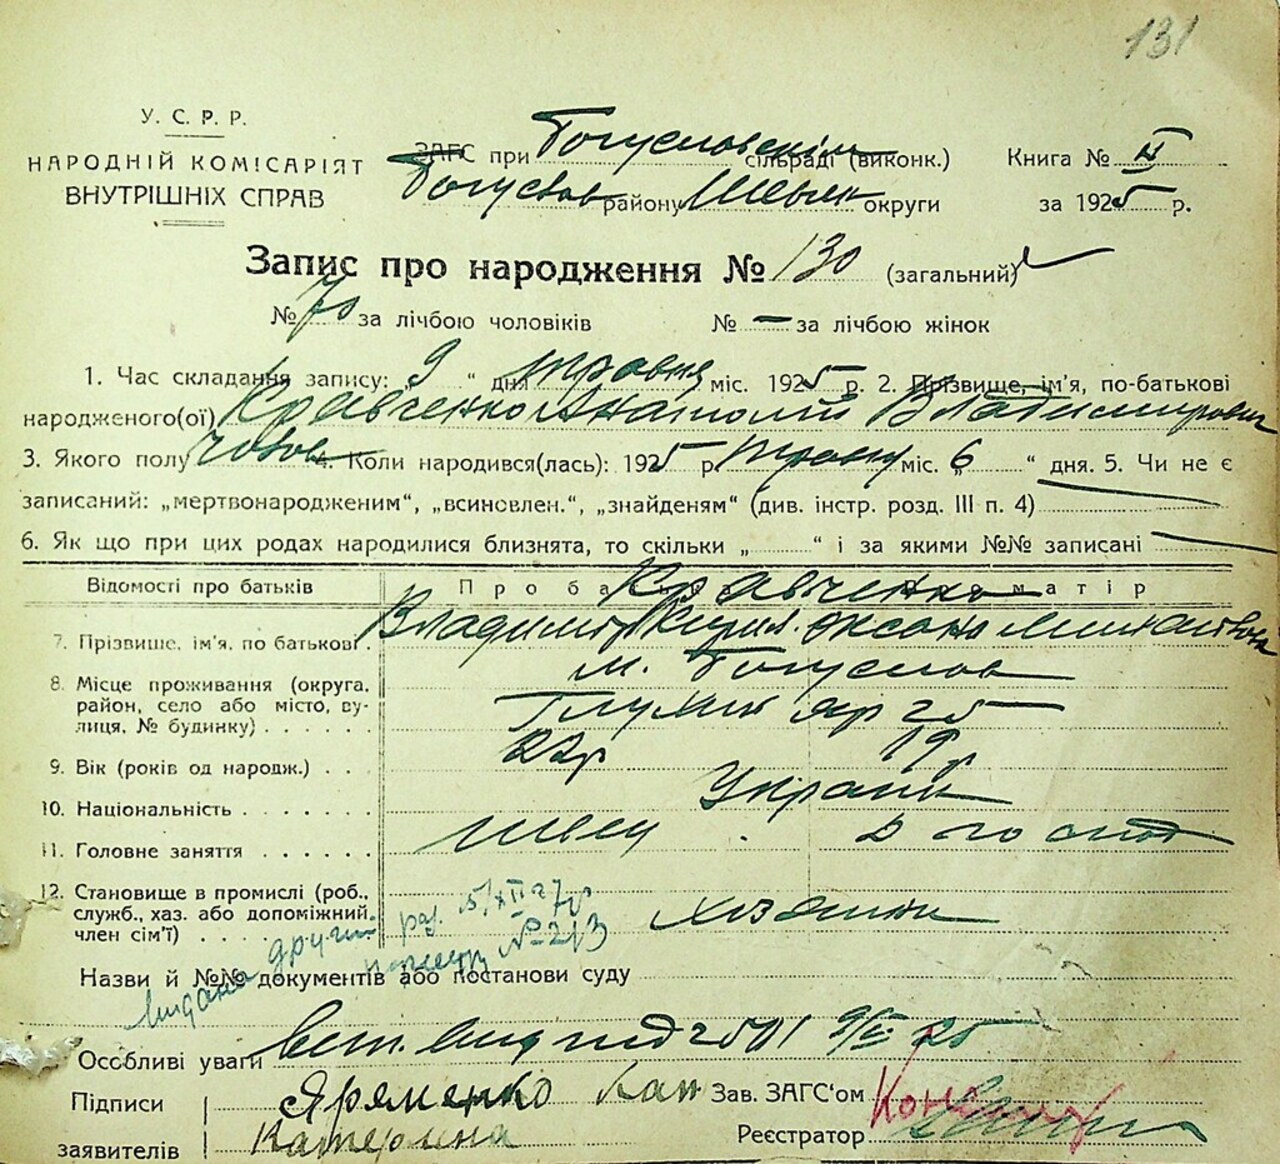 131
У. С. Р. Р.
НАРОДНІЙ КОМІСАРІЯТ
ВНУТРІШНІХ СПРАВ
ЗАГС при Богуславськім сільраді (виконк.)
Богуслав району Шевченк округи
Книга № II
за 1925 р.
Запис про народження № 130 (загальний)
№ 70 за лічбою чоловіків № — за лічбою жінок
1. Час складання запису: 9 " дня травня міс. 1925 р. 2. Прізвище, ім'я, по-батькові
народженого(ої) Кравченко Анатолій Владимирович
3. Якого полу чолов 4. Коли народився(лась): 1925 р. травня міс. 6 " дня. 5. Чи не є
записаний: „мертвонародженим“, „всиновлен.“, „знайденям“ (див. інстр. розд. III п. 4)
6. Як що при цих родах народилися близнята, то скільки „ “ і за якими №№ записані
Відомості про батьків Про батька матір
Кравченко
7. Прізвище, ім'я, по батькові. Владимир Кирил. Оксана
8. Місце проживання (округа, район, село або місто, вулиця, № будинку) м. Богуслав
яр 25
9. Вік (років од народж.) 22р 19р
10. Національність Україн
11. Головне заняття швець
12. Становище в промислі (роб., служб., хаз. або допоміжний член сім'ї) хазяїн
видана другий раз 15/XII 27р
номер № 213
Назви й №№ документів або постанови суду
Особливі уваги 2501 9/V 25
Підписи
заявителів
Яременко
Катерина
Зав. ЗАГС'ом
Реєстратор